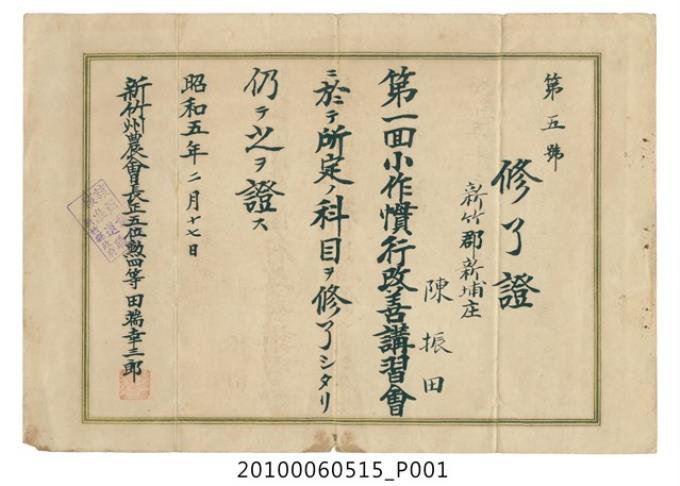 第五號
修了證
新竹郡新埔庄
陳振田
第一回小作慣行改善講習會
ニ於テ所定ノ科目ヲ修了シタリ
仍テ之ヲ證ス
昭和五年二月十七日
新竹州農會長正五位勲四等田端幸三郎
20100060515_P001